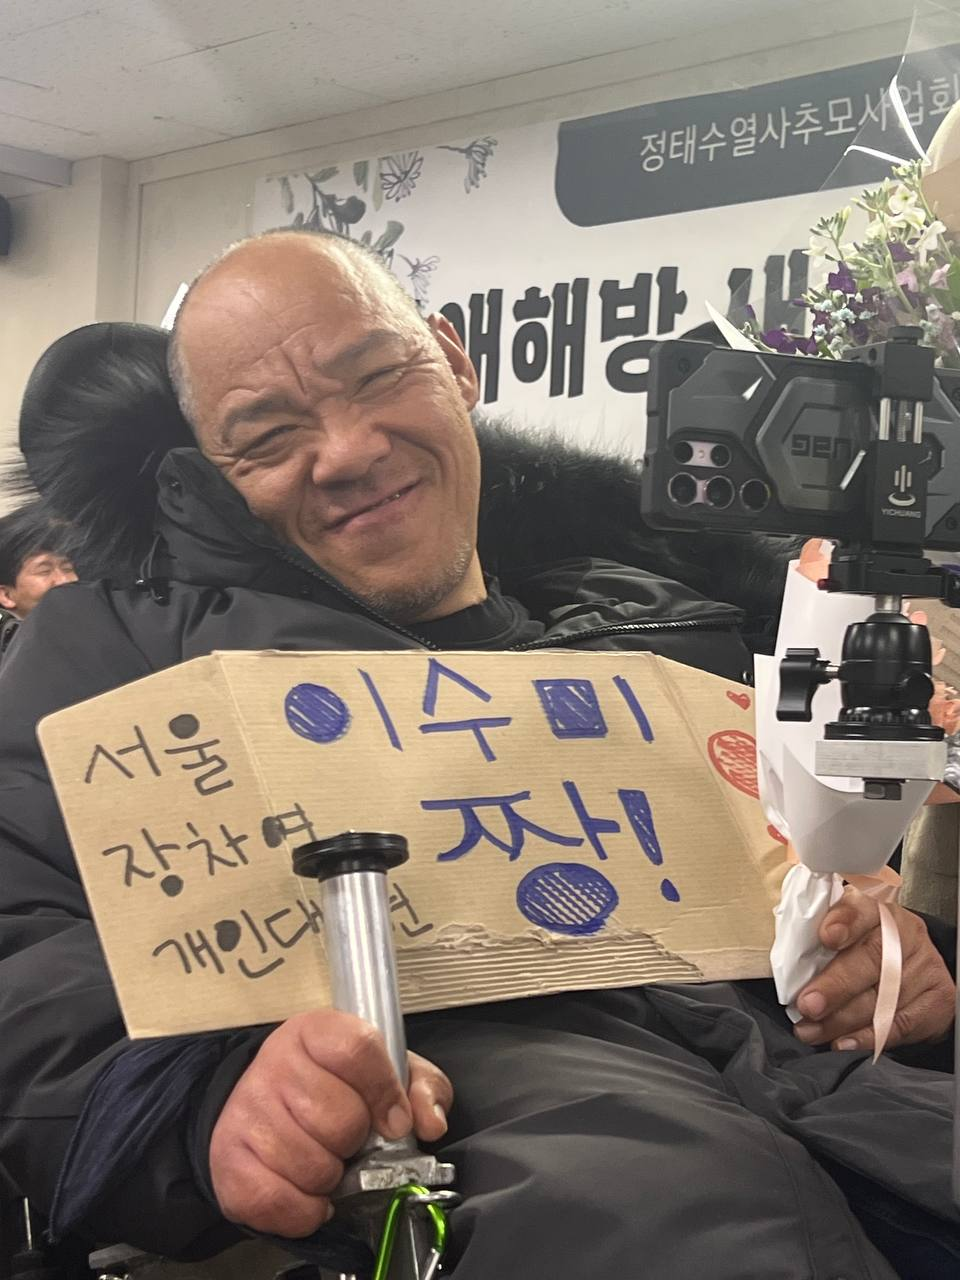 정태수열사추모사업회
애해방
이수미
짱!
서울
장차연
개인대
GEN
YICHUANG